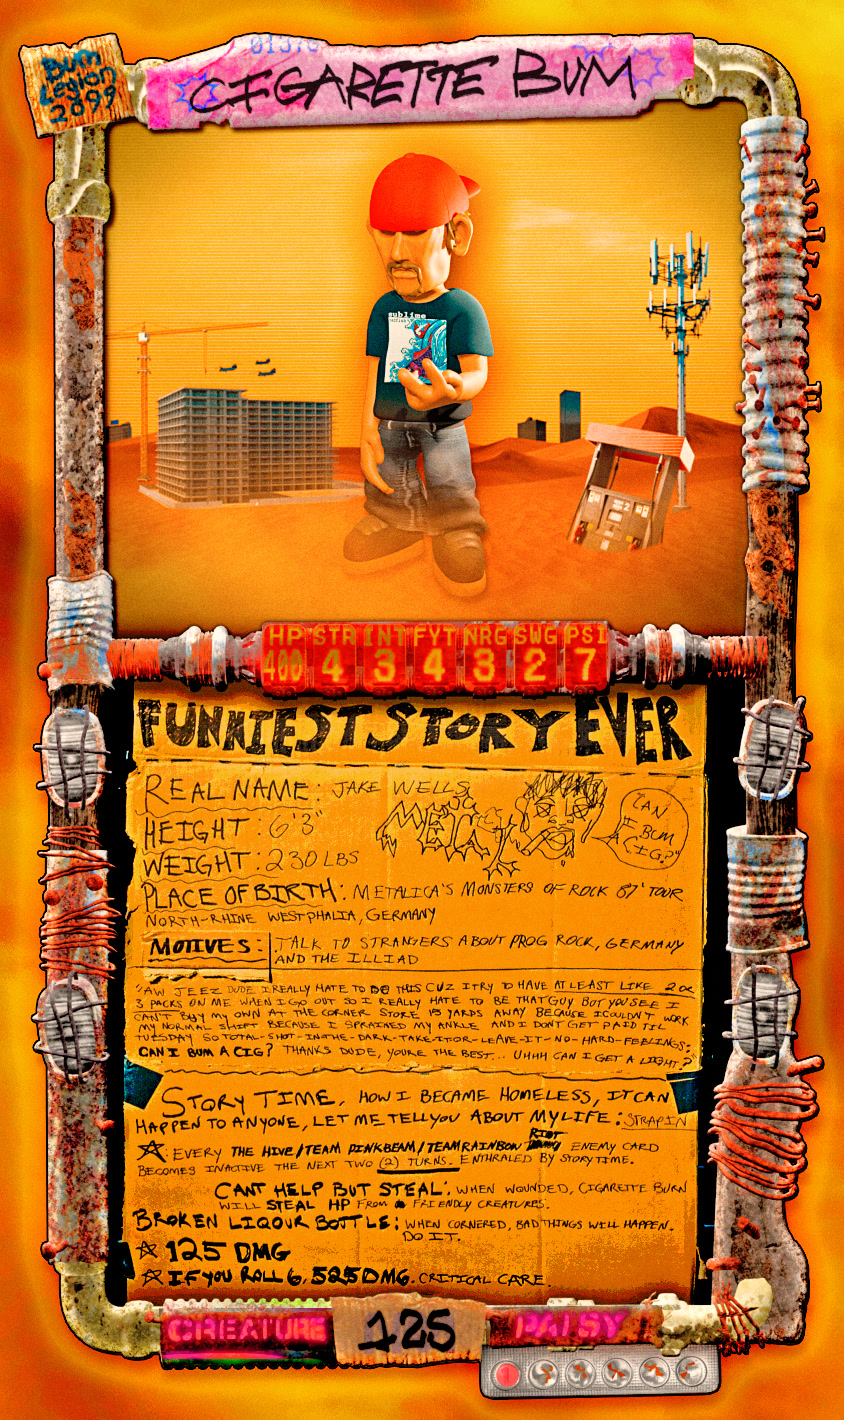 Bum
Legion
2099
01376
CIGARETTE BUM
sublime
HP STR INT FYT NRG SWG PSI
400 4 3 4 3 2 7
FUNKIEST STORY EVER
REAL NAME: JAKE WELLS
HEIGHT: 6'3"
WEIGHT: 230 LBS
"CAN
I BUM
A CIG?"
PLACE OF BIRTH: METALICA'S MONSTERS OF ROCK 87' TOUR
NORTH-RHINE WESTPHALIA, GERMANY
MOTIVES: TALK TO STRANGERS ABOUT PROG ROCK, GERMANY
AND THE ILLIAD
"AW JEEZ DUDE I REALLY HATE TO DO THIS CUZ I TRY TO HAVE AT LEAST LIKE 2 OR
3 PACKS ON ME WHEN I GO OUT SO I REALLY HATE TO BE THAT GUY BUT YOU SEE I
CAN'T BUY MY OWN AT THE CORNER STORE 15 YARDS AWAY BECAUSE I COULDN'T WORK
MY NORMAL SHIFT BECAUSE I SPRAINED MY ANKLE AND I DON'T GET PAID TIL
TUESDAY SO TOTAL-SHOT-IN-THE-DARK-TAKE-IT-OR-LEAVE-IT-NO-HARD-FEELINGS:
CAN I BUM A CIG? THANKS DUDE, YOURE THE BEST... UHHH CAN I GET A LIGHT?"
STORY TIME, HOW I BECAME HOMELESS, IT CAN
HAPPEN TO ANYONE, LET ME TELL YOU ABOUT MY LIFE: STRAP IN
EVERY THE HIVE/TEAM PINKBEAM/TEAM RAINBOW RIOT ENEMY CARD
BECOMES INACTIVE THE NEXT TWO (2) TURNS. ENTHRALED BY STORYTIME.
CANT HELP BUT STEAL: WHEN WOUNDED, CIGARETTE BURN
WILL STEAL HP FROM FRIENDLY CREATURES.
BROKEN LIQOUR BOTTLE: WHEN CORNERED, BAD THINGS WILL HAPPEN.
DO IT.
125 DMG
IF YOU ROLL 6, 525 DMG. CRITICAL CARE.
CREATURE 125 PALSY
1